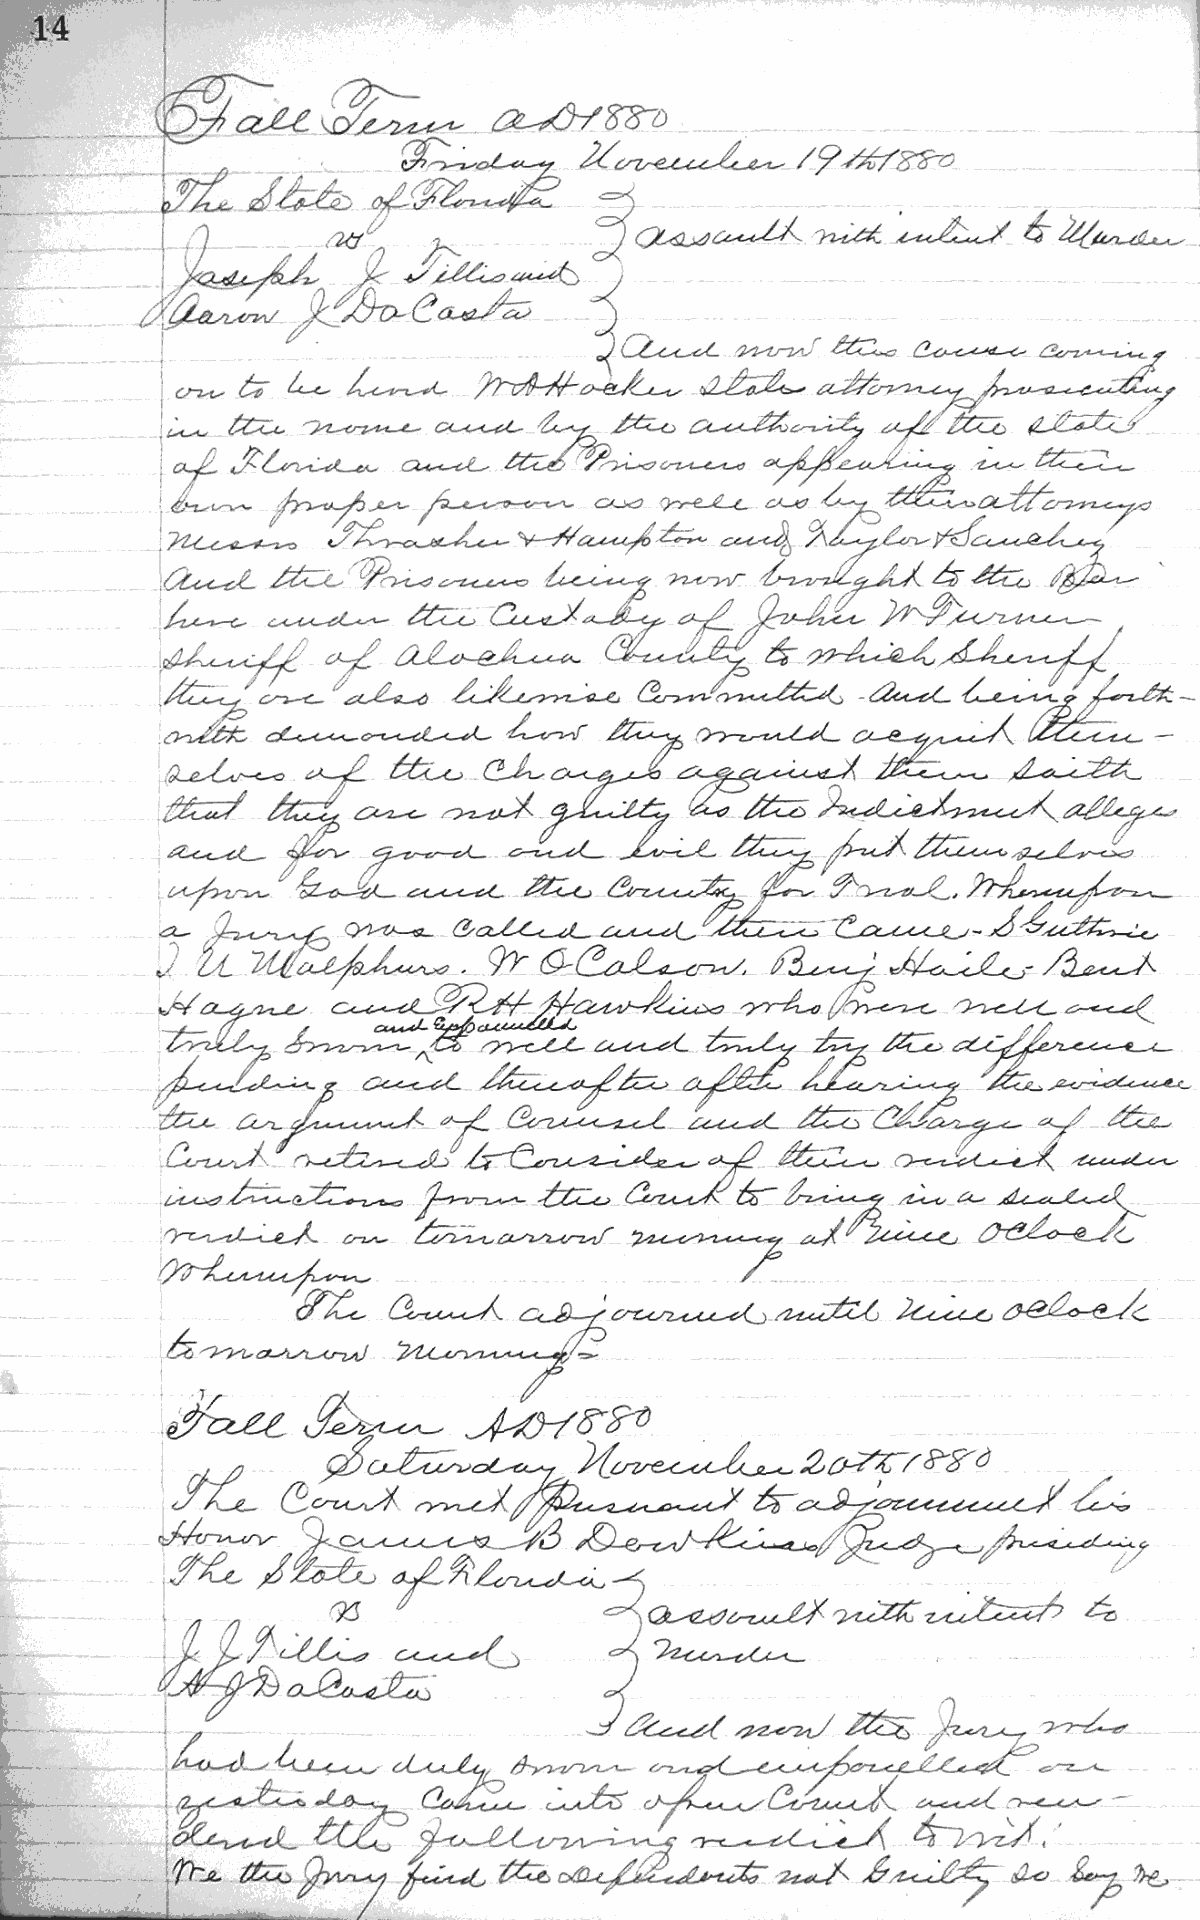 14
Fall Term AD 1880
Friday November 19th 1880
The State of Florida
vs
assault with intent to Murder
Joseph J Tillis and
Aaron J DaCosta
And now this cause coming
on to be heard W A Hocker State attorney prosecuting
in the name and by the authority of the state
of Florida and the Prisoners appearing in their
own proper person as well as by their attorneys
Messrs Thrasher & Hampton and Taylor & Sanchez
And the Prisoners being now brought to the Bar
here under the Custody of John W Turner
Sheriff of Alachua County to which Sheriff
they are also likewise Committed - And being forth-
with demanded how they would acquit them-
selves of the Charges against them saith
that they are not guilty as the Indictment alleges
and for good and evil they put themselves
upon God and the Country for Trial. Whereupon
a Jury was called and then Came - S Guthrie
W O Colson. Benj Haile - Bent
Hagne and R H Hawkins who were well and
truly Sworn and Eppanelled to well and truly try the difference
pending and thereafter after hearing the evidence
the argument of Counsel and the Charge of the
Court retired to Consider of their verdict under
instructions from the Court to bring in a sealed
verdict on tomorrow morning at Nine OClock
Whereupon
The Court adjourned until Nine oclock
tomarrow morning =
Fall Term AD 1880
Saturday November 20th 1880
The Court met Pursuant to adjournment his
Honor James B Dawkins Judge presiding
The State of Florida
vs
assault with intent to
J J Tillis and
Murder
A J DaCosta
And now the Jury who
had been duly sworn and empanelled on
yesterday Came into open Court and ren-
dered the following verdict to wit:
We the Jury find the Defendants not Guilty so Say we